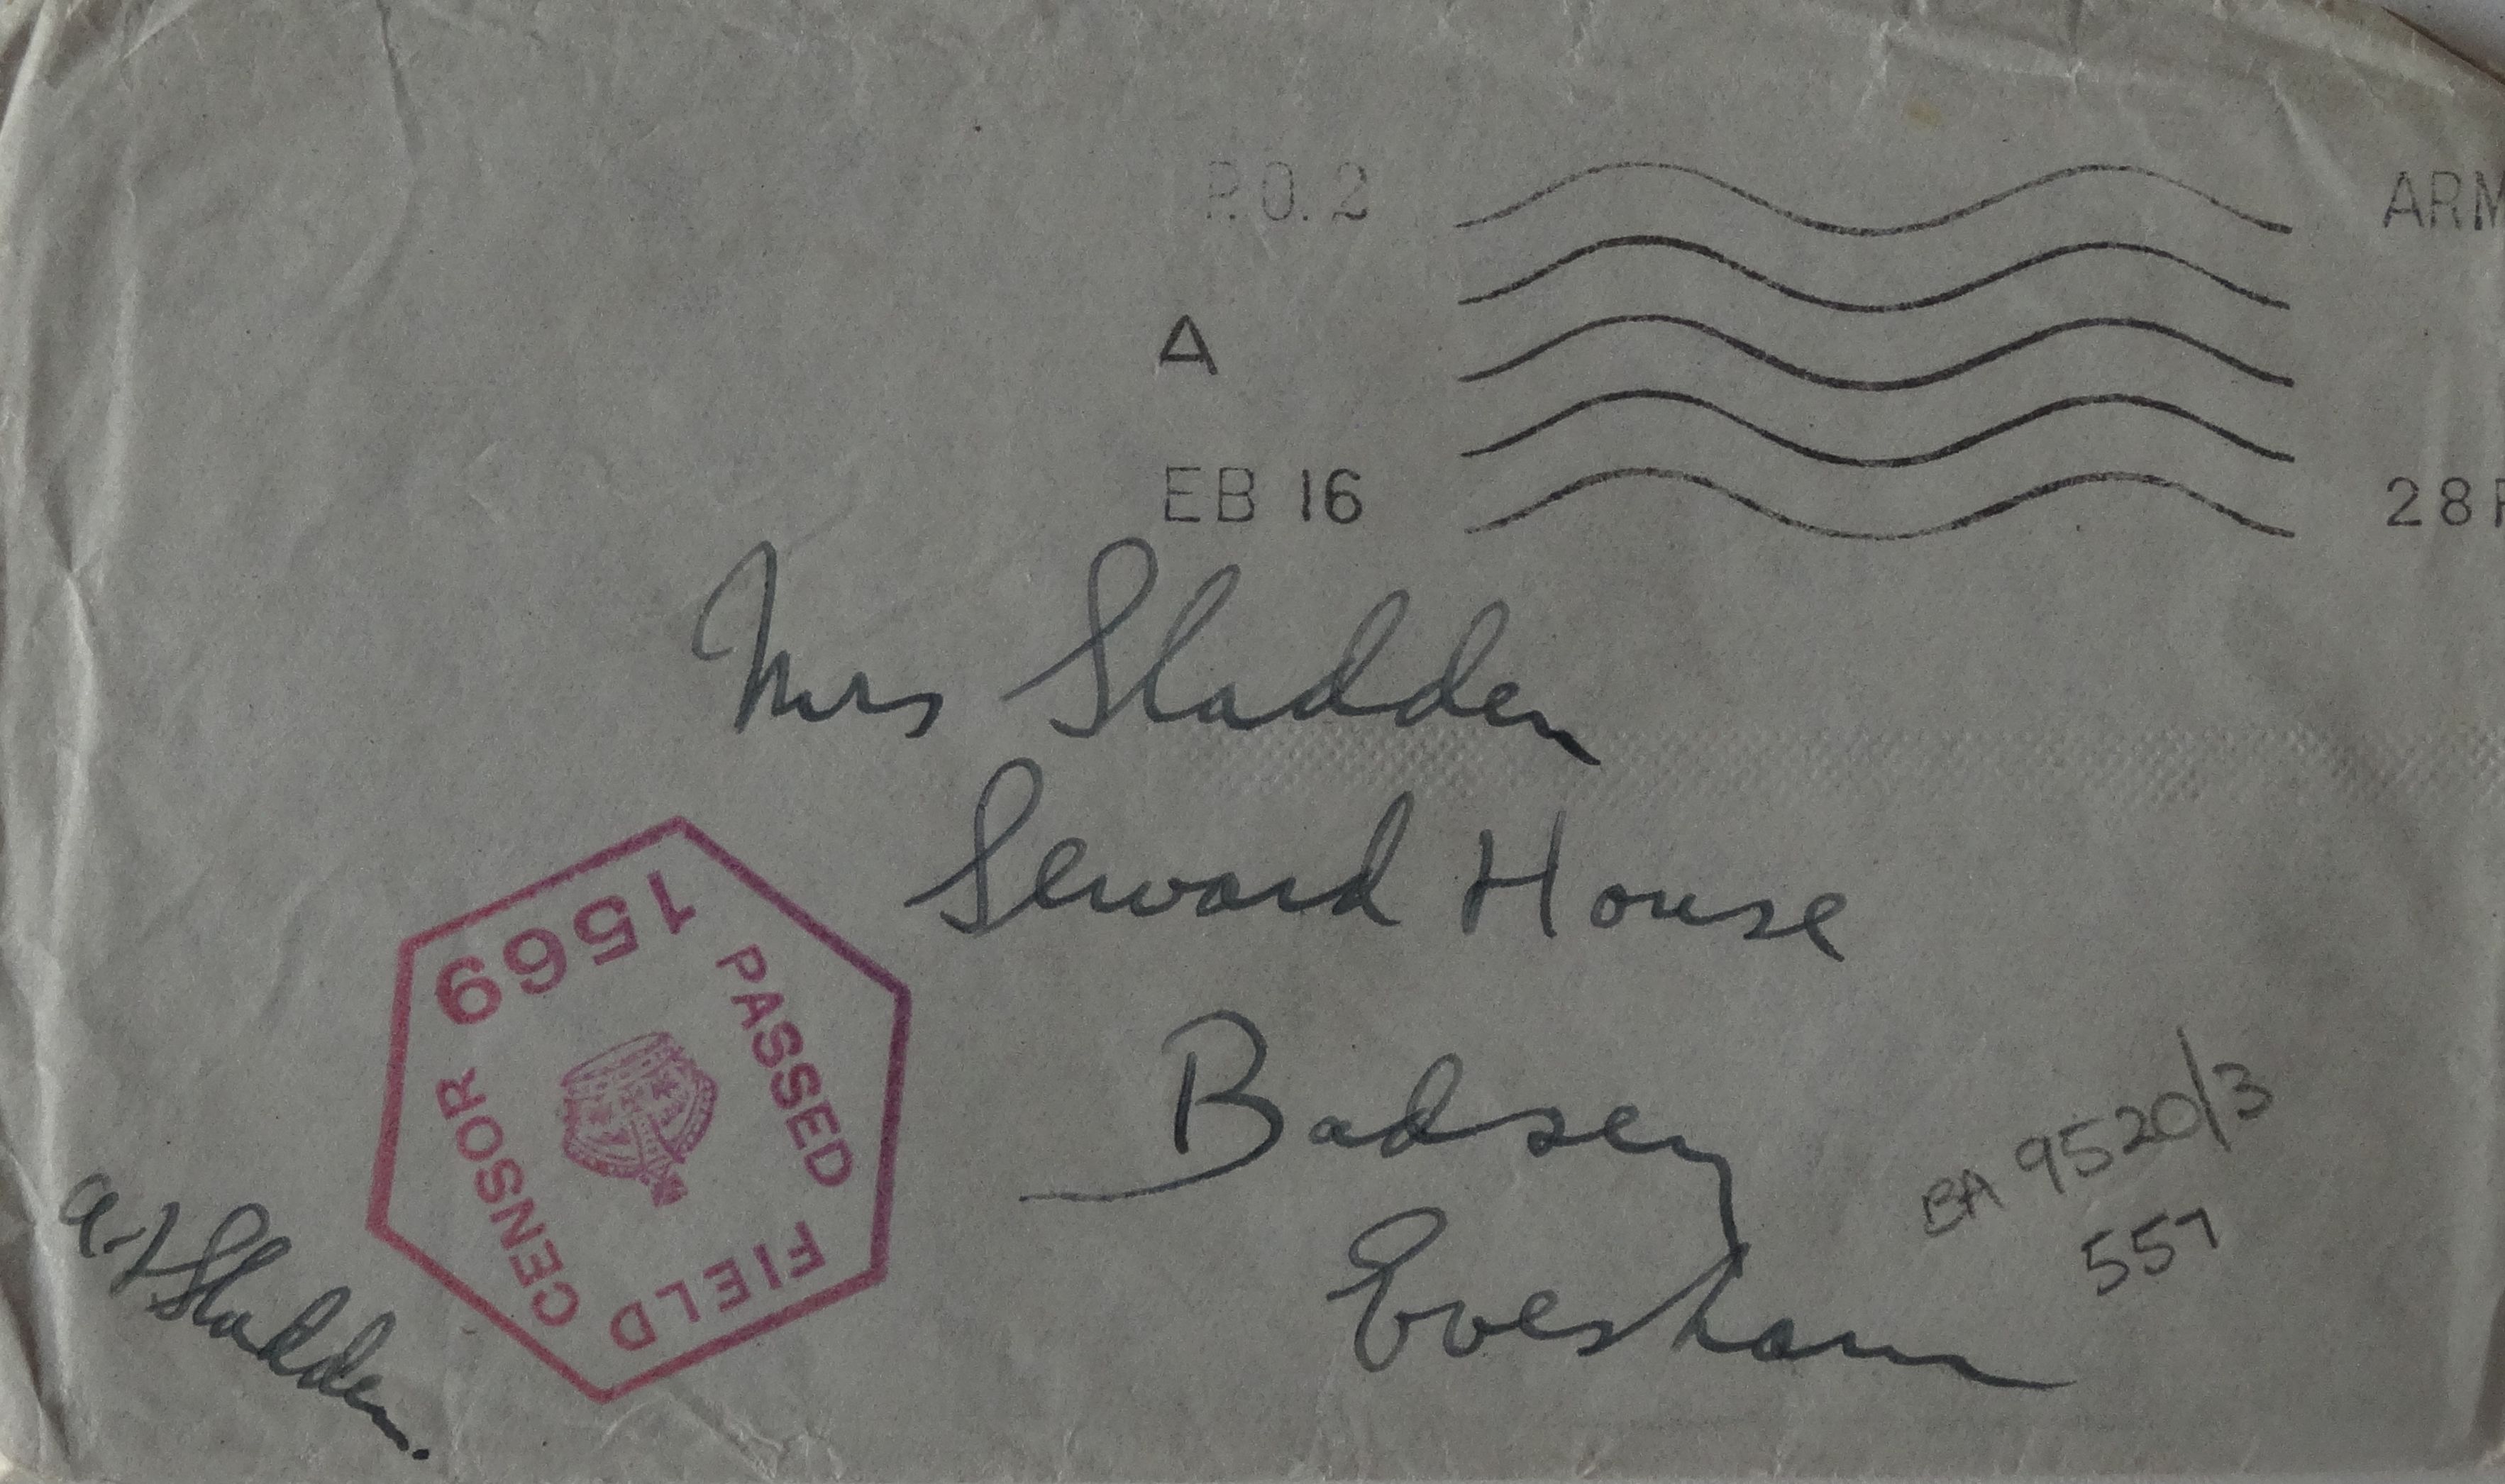 P.O. 2 ARM
A
EB 16 28 F
Mrs Sladden
Seward House
Badsey
Evesham
PASSED
FIELD
CENSOR
1569
A. F Sladden.
BA 9520/3
557